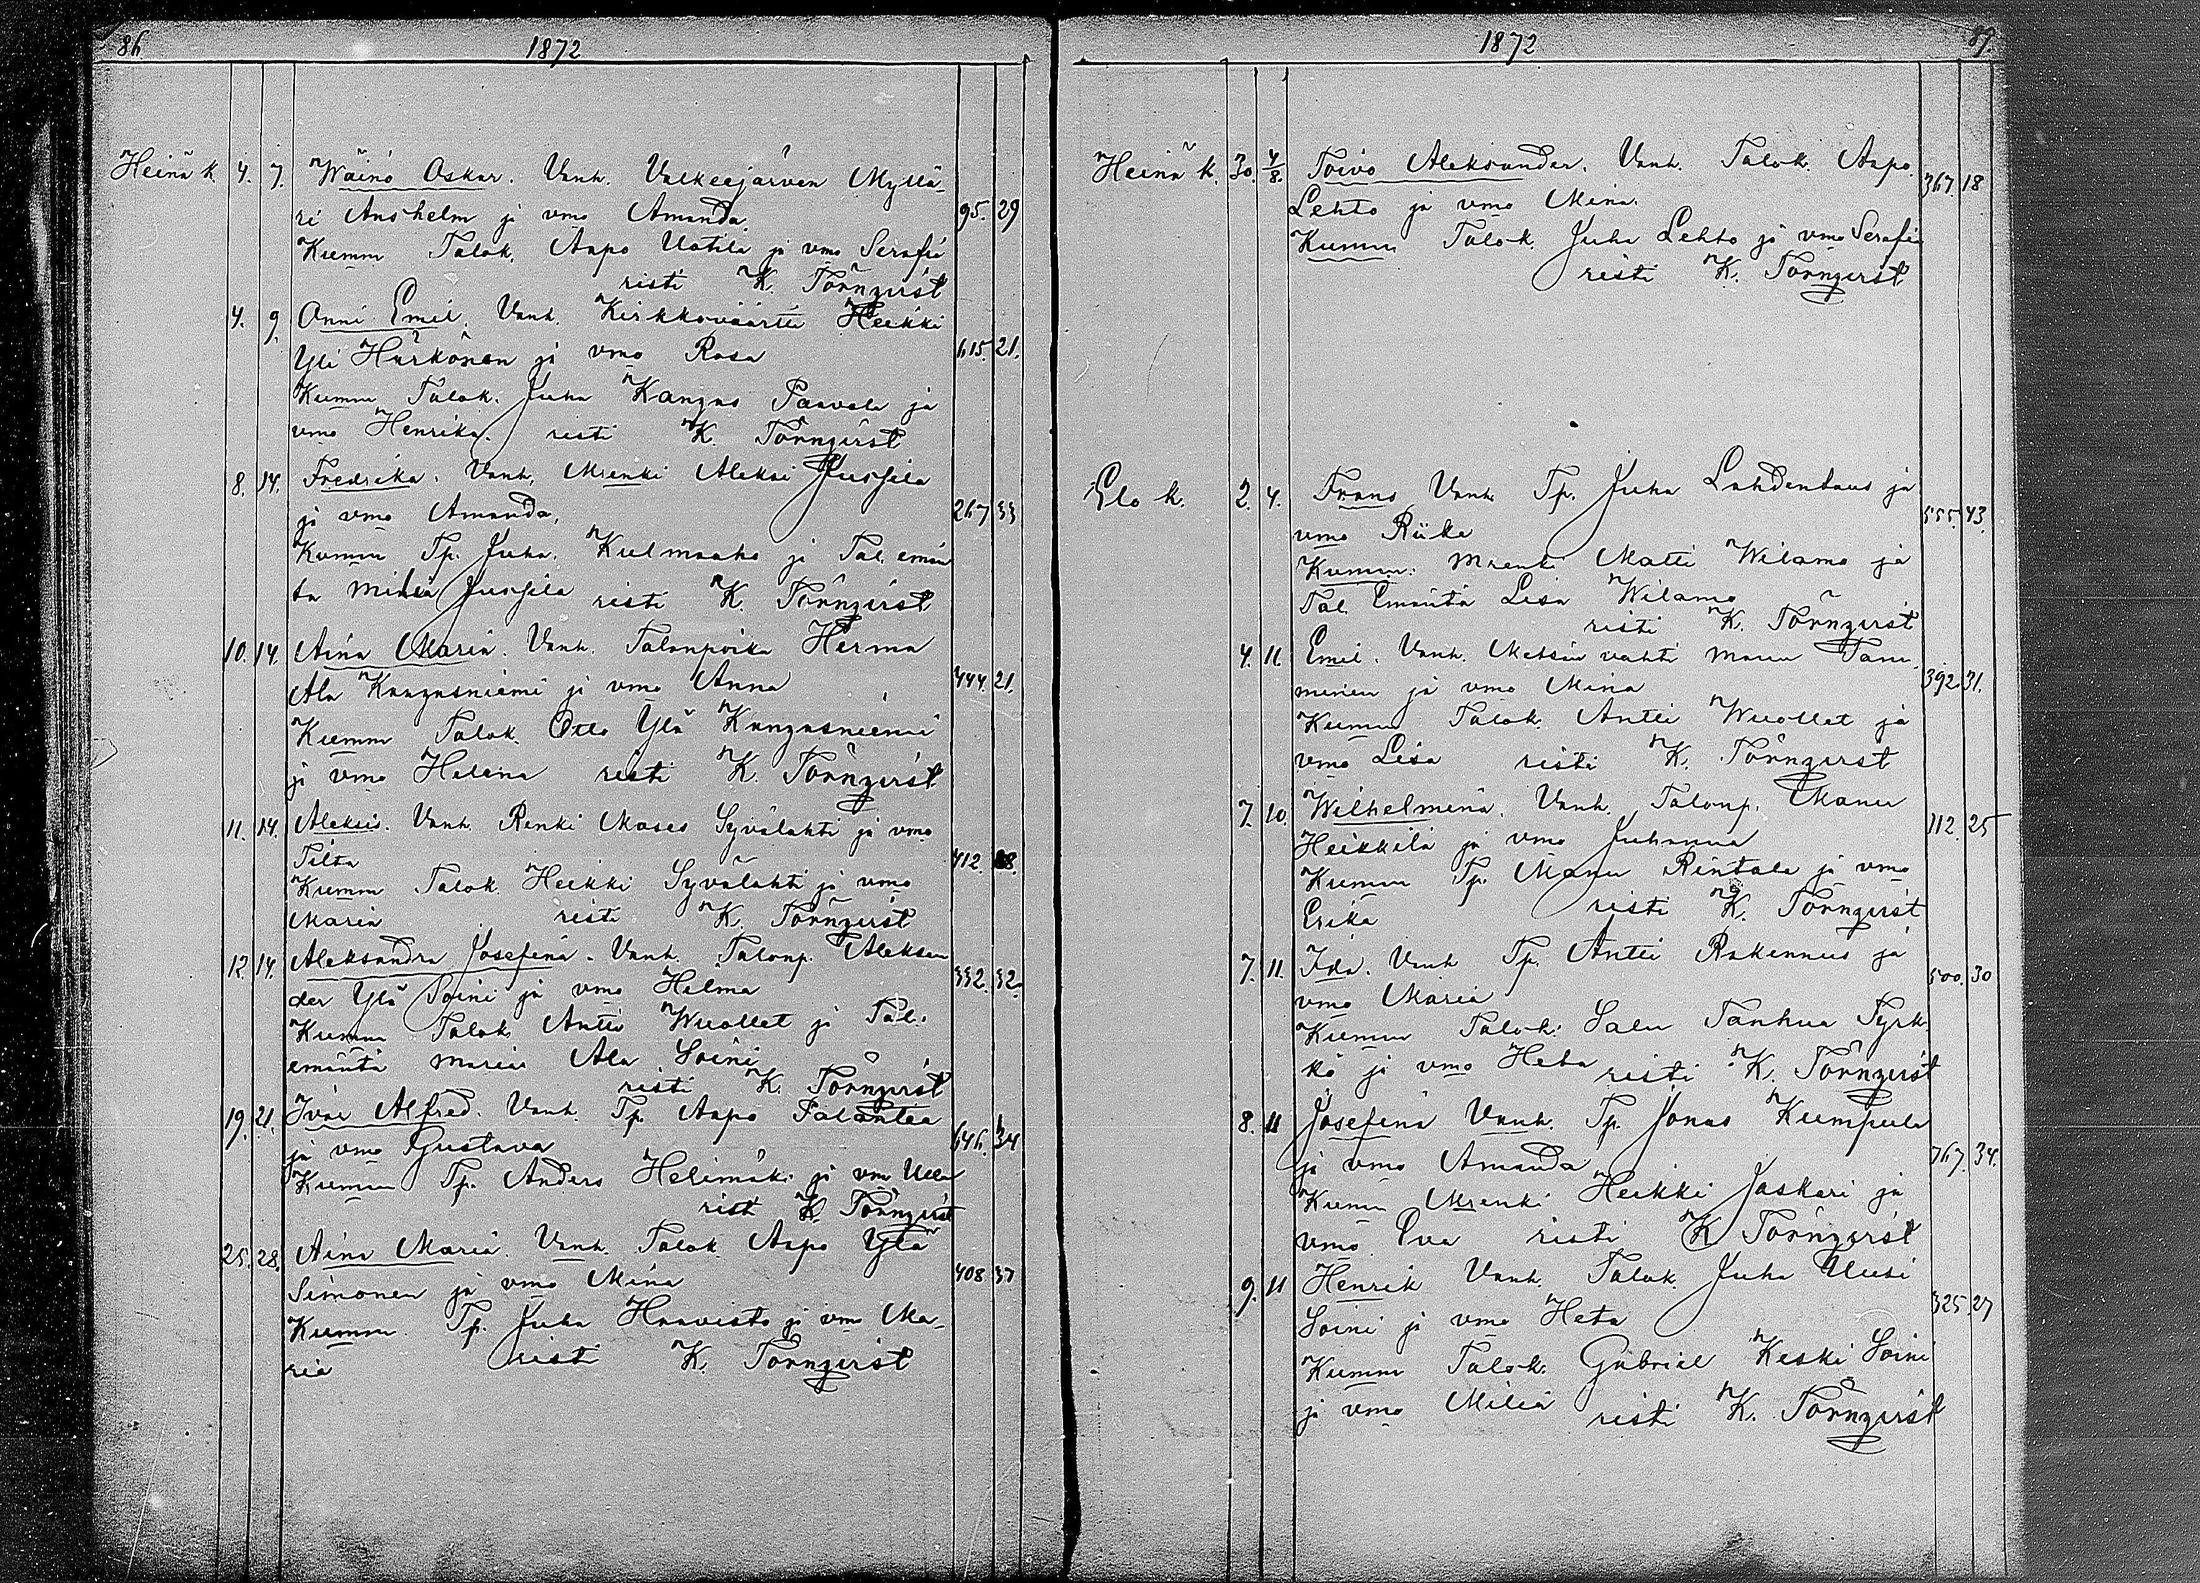 86.
1872
Heinä k. 4. 7. Wäinö Oskar. Vanh. Valkeejärven Myllä-
ri Anshelm ja vmo Amanda. 95. 29
Kumm Talok. Aapo Uotila ja vmo Serafia
risti K. Törnqvist
4. 9. Onni Emil. Vanh. Kirkkoväärtti Heikki
Yli Härkönen ja vmo Rosa 615. 21.
Kumm Talok. Juha Kangas Paavola ja
vmo Henrika. risti K. Törnqvist
8. 14. Fredrika. Vanh. Mrenki Aleksi Jussila
ja vmo Amanda, 267 33
Kumm Tp. Juha Kulmaaho ja Tal. emän
ta Milia Jussila risti K. Törnqvist
10. 14. Aina Maria. Vanh. Talonpoika Herma
Ala Kangasniemi ja vmo Anna 444. 21.
Kumm Talok. Otto Ylä Kangasniemi
ja vmo Helena risti K. Törnqvist
11. 14. Aleksis. Vanh. Renki Moses Syvälahti ja vmo
Tilta 412. 28.
Kumm Talok. Heikki Syvälahti ja vmo
Maria risti K. Törnqvist
12. 14. Aleksandra Josefina. Vanh. Talonp. Aleksan
der Ylä Soini ja vmo Helma 332. 32.
Kumm Talok. Antti Wuollet ja Tal.
emäntä Maria Ala Soini
risti K. Törnqvist
19. 21. Ivar Alfred. Vanh. Tp. Aapo Palentea
ja vmo Gustava 646. 34
Kumm Tp. Anders Helimäki ja vmo Ulla
risti K. Törnqvist
25. 28. Aina Maria. Vanh. Talok. Aapo Ylä
Simonen ja vmo Mina 408 37
Kumm. Tp. Juha Haavisto ja vmo Ma-
ria risti K. Törnqvist
87.
1872
Heinä k. 30. 4/8. Toivo Aleksander. Vanh. Talok. Aapo
Lehto ja vmo Mina. 367 18
Kumm Talok. Juha Lehto ja vmo Serafia
risti K. Törnqvist
Elo k. 2. 4. Frans Vanh. Tp. Juha Lahdentaus ja
vmo Riika 555. 43.
Kumm: Mrenki Matti Wilamo ja
Tal. Emäntä Lisa Wilamo
risti K. Törnqvist
4. 11. Emil. Vanh. Metsän vahti Manu Tam
minen ja vmo Mina 392. 31.
Kumm Talok. Antti Wuollet ja
vmo Lisa risti K. Törnqvist
7. 10. Wilhelmina. Vanh. Talonp. Manu
Heikkilä ja vmo Juhanna 112. 25
Kumm Tp. Manu Rintala ja vmo
Erika risti K. Törnqvist
7. 11. Ida. Vanh Tp. Antti Rakennus ja
vmo Maria 500. 30
Kumm Talok. Salu Tanhua Tyrk
kö ja vmo Heta risti K. Törnqvist
8. 11 Josefina Vanh. Tp. Jonas Kumpula
ja vmo Amanda 767. 34.
Kumm Mrenki Heikki Jaskari ja
vmo Eva risti K Törnqvist
9. 11 Henrik Vanh. Talok. Juha Uusi
Soini ja vmo Heta 325. 27
Kumm Talok. Gabriel Keski Soini
ja vmo Milia risti K. Törnqvist